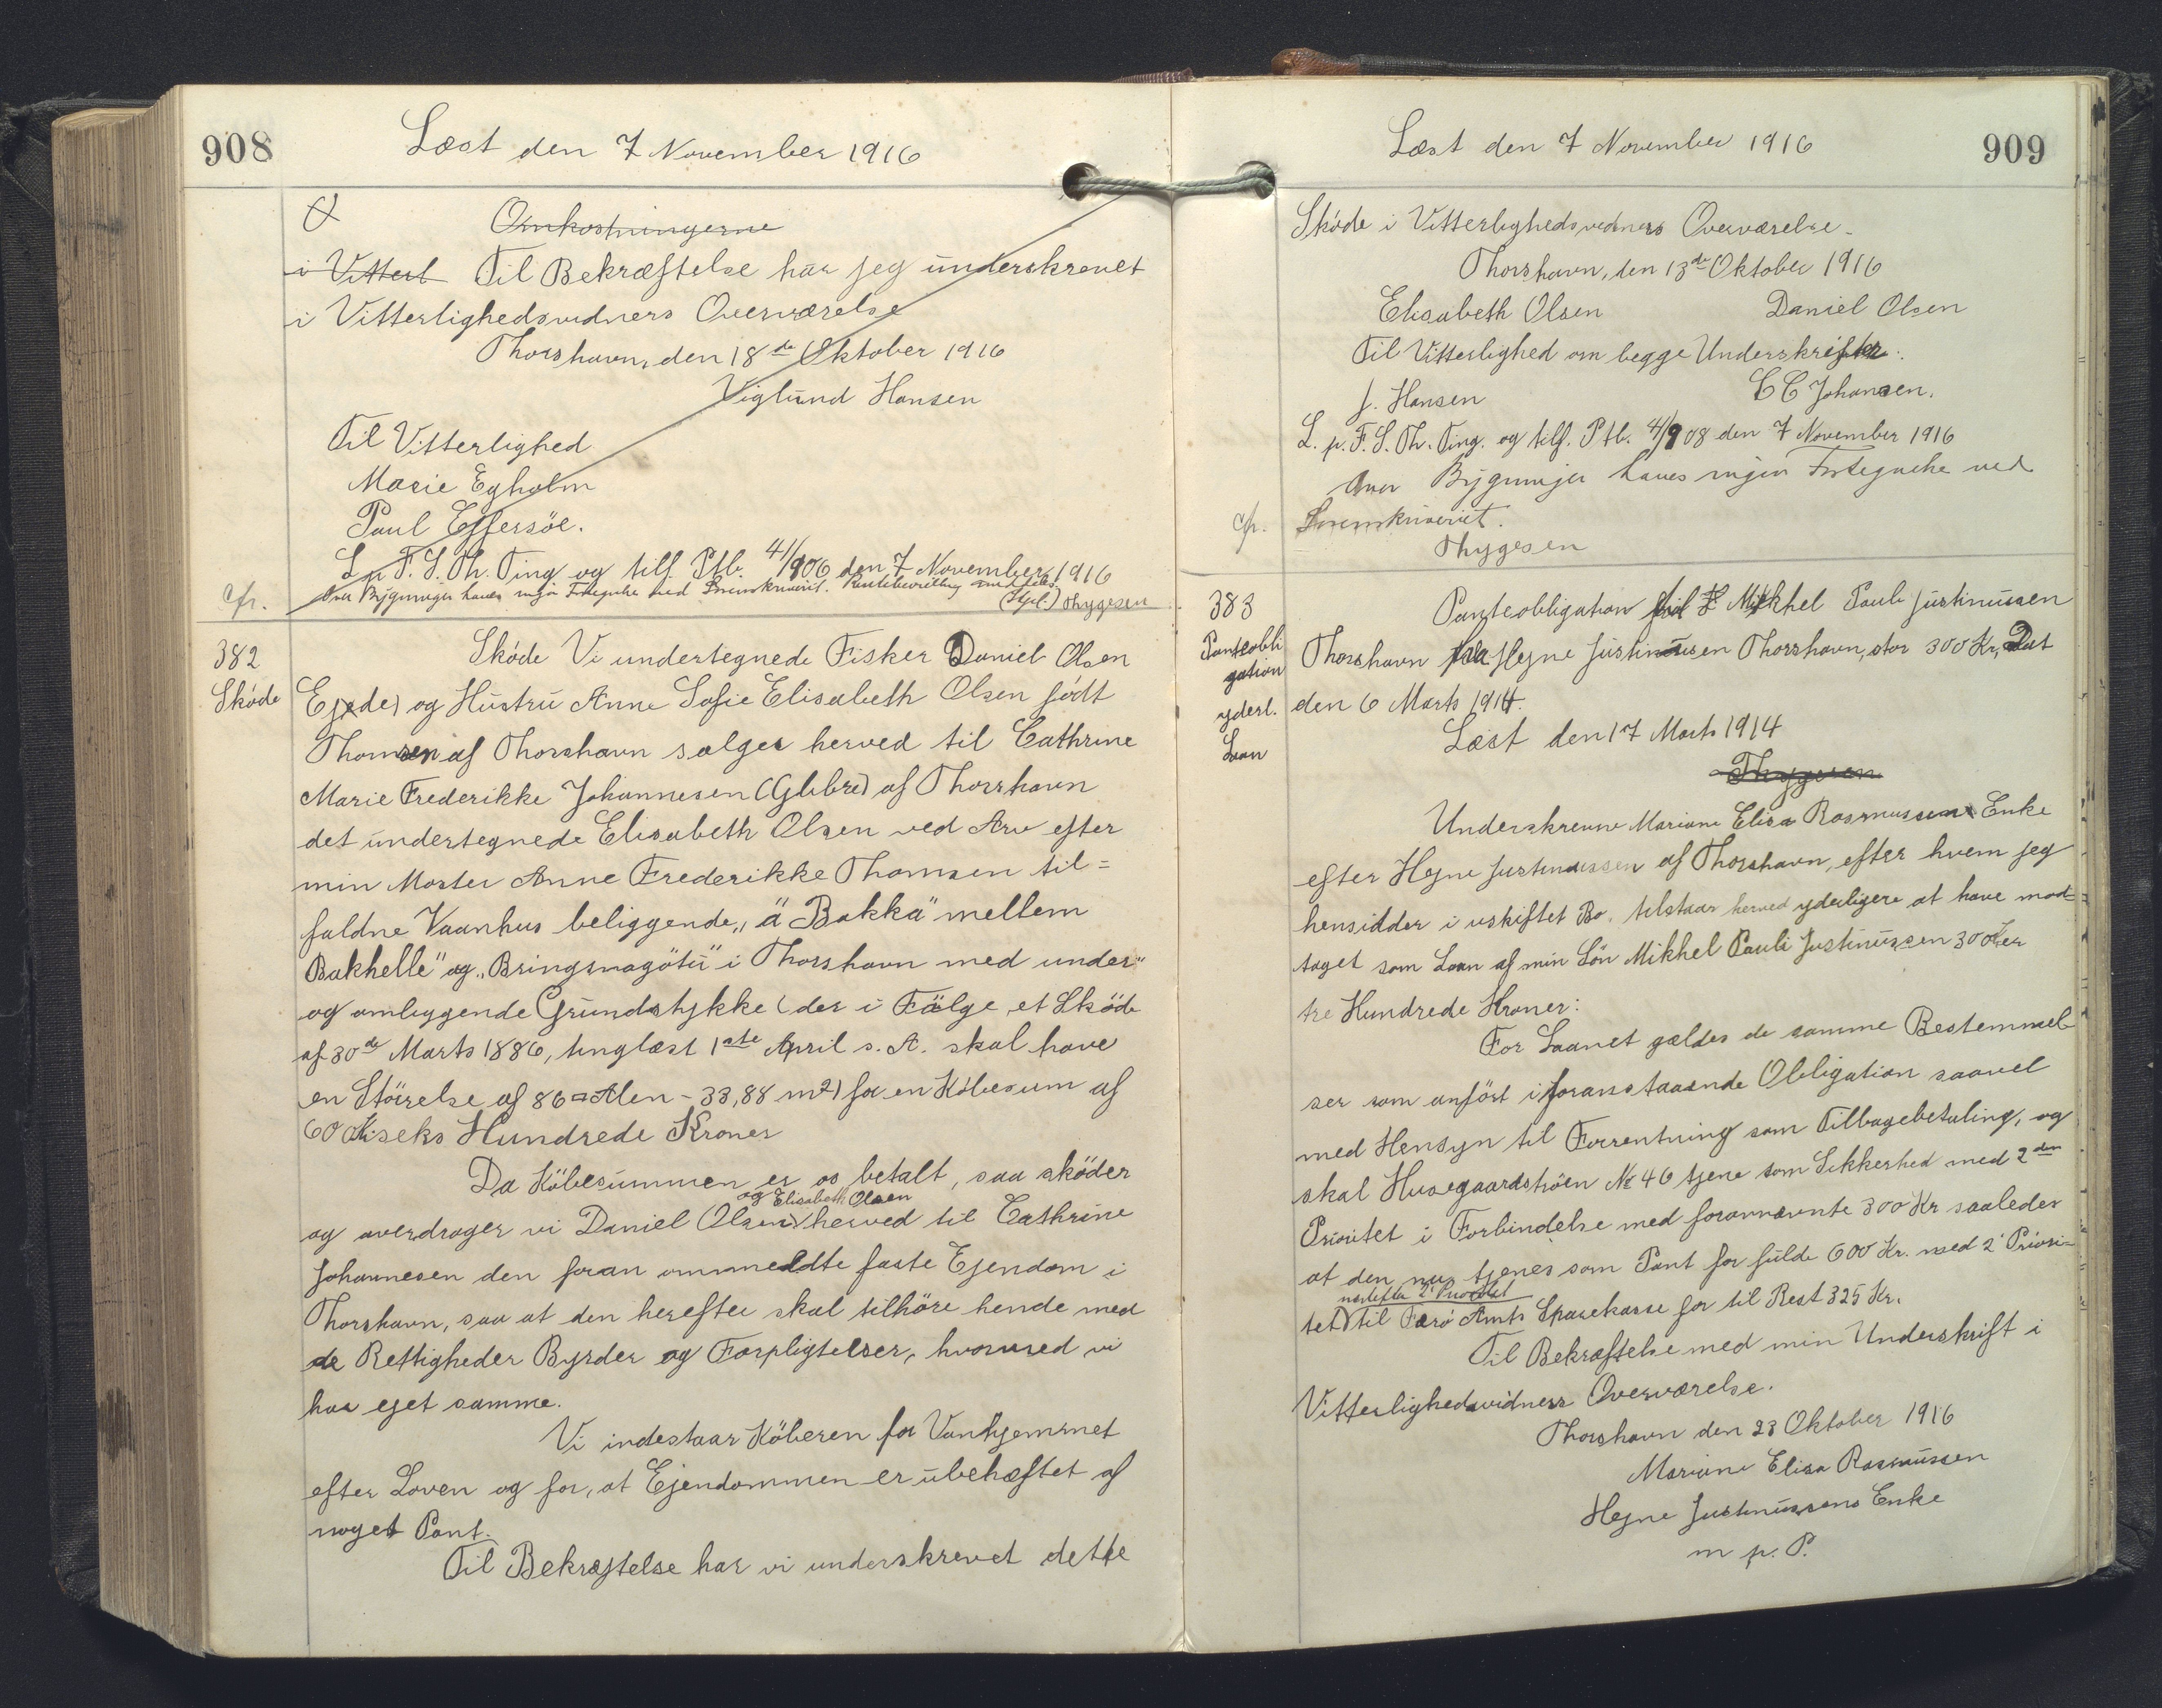 908
Læst den 7 November 1916
Omkostningerne
i Vitterl Til Bekræftelse har jeg underskrevet
i Vitterlighedsvidners Overværelse
Thorshavn, den 18de Oktober 1916
Viglund Hansen
Til Vitterlighed
Marie Egholm
Paul Effersöe.
L. p. F. S. Th. Ting og tilf. Ptb. 41/906 den 7 November 1916
cfr. Over Bygninger haves ingen Fortegnelse ved Sorenskriveriet.
Thygesen
382
Sköde
Sköde Vi undertegnede Fisker Daniel Olsen
Ejede) og Hustru Anne Sofie Elisabeth Olsen födt
Thomsen af Thorshavn sælger herved til Cathrine
Marie Frederikke Johannesen (Glibre) af Thorshavn
det undertegnede Elisabeth Olsen ved Arv efter
min Moster Anne Frederikke Thomsen til=
faldne Vaanhus beliggende „ä Bakka" mellem
Bakhelle" og „Bringsnagötü" i Thorshavn med under"
og omliggende Grundstykke (der i Fölge et Sköde
af 30de Marts 1886, tinglæst 1ste April s. A. skal have
en Störrelse af 86 □ Alen - 33,88 m2) for en Köbesum af
600 Kr. seks Hundrede Kroner
Da Köbesummen er os betalt, saa sköder
og Elisabeth Olsen
og overdrager vi Daniel Olsen herved til Cathrine
Johannesen den foran ommeldte faste Ejendom i
Thorshavn, saa at den herefter skal tilhöre hende med
de Rettigheder Byrder og Forpligtelser, hvormed vi
har ejet samme.
Vi indestaar Köberen for Vanhjemmel
efter Loven og for, at Ejendommen er ubehæftet af
noget Pant.
Til Bekræftelse har vi underskrevet dette
Læst den 7 November 1916
909
Sköde i Vitterlighedsvidners Overværelse.
Thorshavn, den 13de Oktober 1916
Elisabeth Olsen Daniel Olsen
Til Vitterlighed om begge Underskrifter:
J. Hansen C C Johansen.
L. p. F. S. Th. Ting. og tilf. Ptb. 41/908 den 7 November 1916
Over Bygninger haves ingen Fortegnelse ved
cfr. Sorenskriveriet.
Thygesen
383
Panteobli
gation
yderl.
Laan
Panteobligation fra til Mikhel Pauli Justinussen
Thorshavn fra Hejne Justinussen Thorshavn, stor 300 Kr, Dat
den 6 Marts 1914.
Læst den 17 Marts 1914
Thygesen
Underskrevne Mariane Elisa Rasmussen Enke
efter Hejne Justinussen af Thorshavn, efter hvem jeg
hensidder i uskiftet Bo, tilstaar herved yderligere at have mod=
taget som Laan af min Sön Mikhel Pauli Justinussen 300 Kr er
tre Hundrede Kroner:
For Laanet gælder de samme Bestemmel
ser som anfört i foranstaaende Obligation saavel
med Hensyn til Forrentning som Tilbagebetaling, og
skal Husegaardströen № 46 tjene som Sikkerhed med 2den
Prioritet i Forbindelse med forannævnte 300 Kr saaledes
at den nu tjener som Pant for fulde 600 Kr. med 2' Priori=
næstefter 1' Prioritet
tet til Færö Amts Sparekasse for til Rest 325 Kr.
Til Bekræftelse med min Underskrift i
Vitterlighedsvidners Overværelse.
Thorshavn den 23 Oktober 1916
Mariane Elisa Rasmussen
Hejne Justinussens Enke
m p. P.